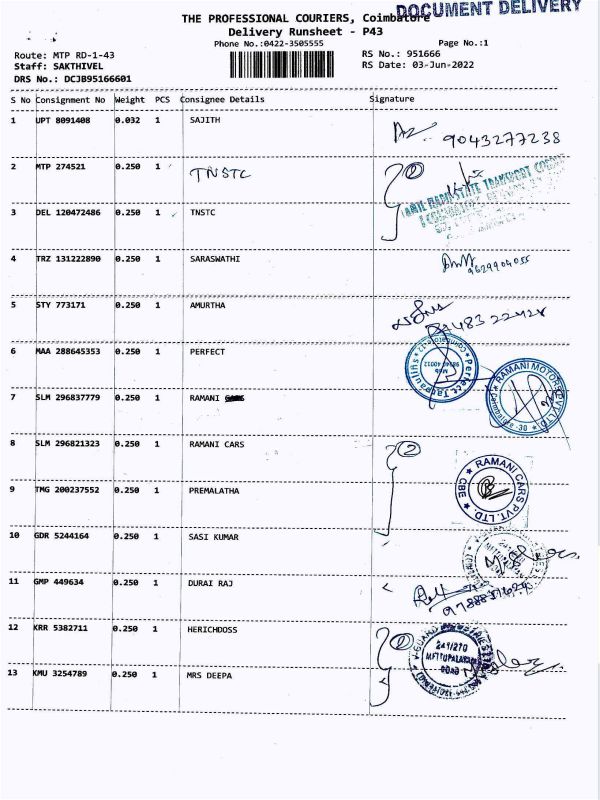 DOCUMENT DELIVERY
THE PROFESSIONAL COURIERS, Coimbatore
Delivery Runsheet - P43
Phone No.:0422-3505555
Page No.:1
Route: MTP RD-1-43
RS No.: 951666
Staff: SAKTHIVEL
RS Date: 03-Jun-2022
DRS No.: DCJB95166601
S No Consignment No Weight PCS Consignee Details Signature
1 UPT 8091408 0.032 1 SAJITH
9043277238
2 MTP 274521 0.250 1 TNSTC
2
TAMIL NADU STATE TRANSPORT
3 DEL 120472486 0.250 1 TNSTC
4 TRZ 131222890 0.250 1 SARASWATHI
9629904055
5 STY 773171 0.250 1 AMURTHA
6 MAA 288645353 0.250 1 PERFECT
7 SLM 296837779 0.250 1 RAMANI
RAMANI MOTORS PVT LTD
8 SLM 296821323 0.250 1 RAMANI CARS
2
RAMANI CARS PVT. LTD
CBE
9 TMG 200237552 0.250 1 PREMALATHA
10 GDR 5244164 0.250 1 SASI KUMAR
11 GMP 449634 0.250 1 DURAI RAJ
12 KRR 5382711 0.250 1 HERICHDOSS
2
13 KMU 3254789 0.250 1 MRS DEEPA